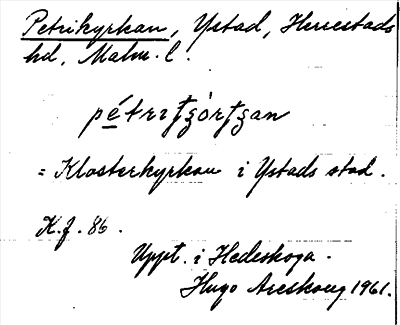 Petrikyrkan, Ystad, Herrestads
hd, Malm. l.
pétritʒȯrtʒan
= Klosterkyrkan i Ystads stad.
K.f. 86.
Uppt. i Hedeskoga.
Hugo Areskoug 1961.